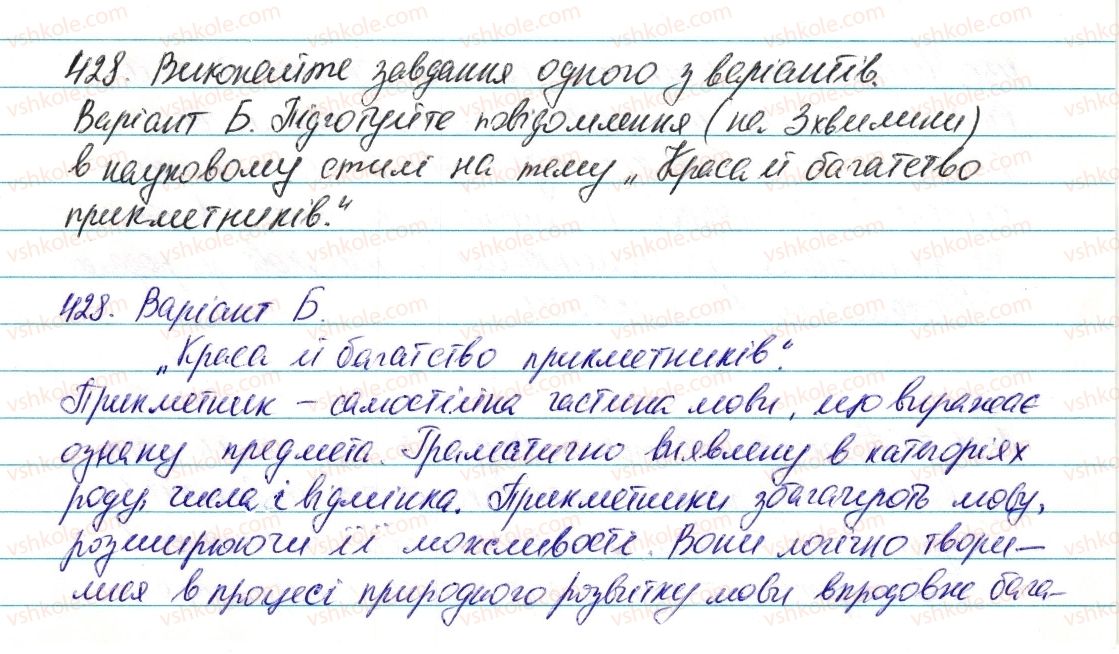 428. Виконайте завдання одного з варіантів.
Варіант Б. Підготуйте повідомлення (на 3 хвилини)
в науковому стилі на тему „Краса й багатство
прикметників."
428. Варіант Б.
„Краса й багатство прикметників".
Прикметник – самостійна частина мови, що виражає
ознаку предмета. Граматично виявлену в категоріях
роду, числа і відмінка. Прикметники збагачують мову,
розширюючи її можливості. Вони логічно твори-
лися в процесі природного розвитку мови впродовж бага-
vshkole.com